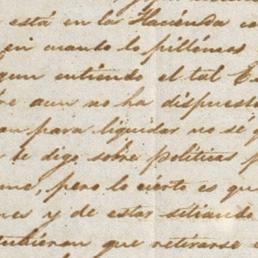 está en la Hacienda co
en cuanto lo pillémos
gun entiendo el tal E
aun no ha dispuesto
para liquidar no sé q
te digo sobre politicas p
me, pero lo cierto es que
nes y de estar sitiando
tubieron que retirarse